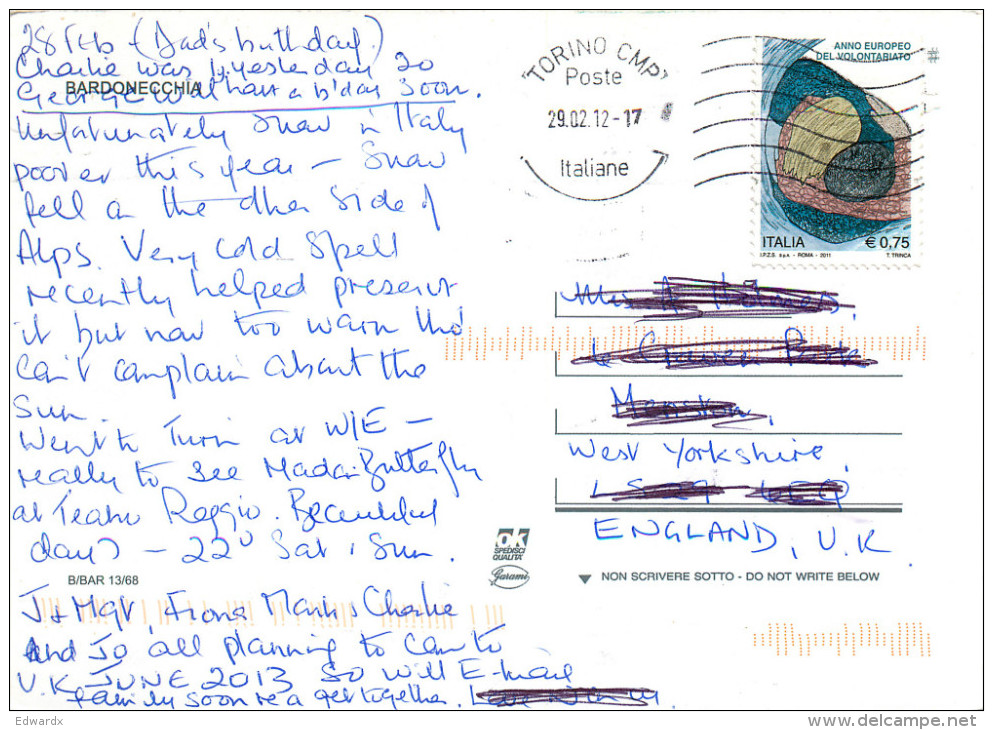 28 Feb (Dad's birthday)
Charlie was 1, yesterday 20
BARDONECCHIA
George will have a b'day soon.
Unfortunately snow in Italy
poor this year - snow
fell on the other side of
Alps. Very cold spell
recently helped preserve
it but now too warm tho'
can't complain about the
sun.
Went to Turin at W/E -
really to see Madam Butterfly
at Teatro Reggio. Beautiful
days - 22° Sat & Sun.
B/BAR 13/68
J + Mgt, Fiona Marius Charlie
and Jo all planning to come to
U.K JUNE 2013 so will E-mail
family soon re a get together.
TORINO CMP
Poste
29.02.12-17
Italiane
ANNO EUROPEO
DEL VOLONTARIATO
ITALIA € 0,75
I.P.Z.S. S.p.A. - ROMA - 2011 T. TRINCA
Menston,
West Yorkshire,
ENGLAND, U.K
ok
SPEDISCI
QUALITA'
Garami
NON SCRIVERE SOTTO - DO NOT WRITE BELOW
Edwardx
delcampe.net